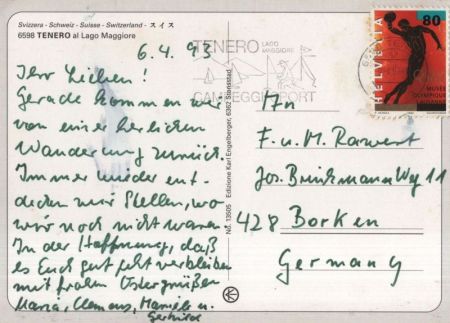 Svizzera - Schweiz - Suisse - Switzerland - スイス
6598 TENERO al Lago Maggiore
6.4.93
Ihr Lieben!
Gerade kommen wir
von einer herrlichen
Wanderung zurück.
Immer wieder ent-
decken wir Stellen, wo
wir noch nicht waren.
In der Hoffnung, daß
es Euch gut geht verbleiben
mit frohen Ostergrüßen
Maria, Clemens, u.
Gerhild
No. 13505 Edizione Karl Engelberger, 6362 Stansstad
TENERO LAGO MAGGIORE
CAMPEGGI SPORT
HELVETIA
80
MUSÉE
OLYMPIQUE
LAUSANNE
An
F. u. M. Rarwert
Jos. Brinkmann Weg 11
428 Borken
Germany